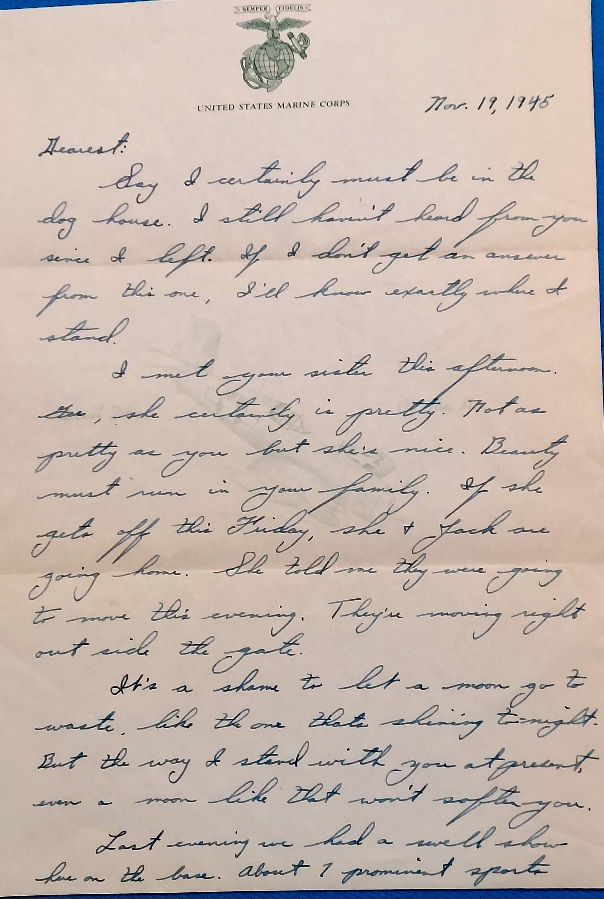 SEMPER FIDELIS
UNITED STATES MARINE CORPS
Nov. 19, 1945
Dearest:
Say I certainly must be in the
dog house. I still haven't heard from you
since I left. If I don't get an answer
from this one, I'll know exactly where I
stand.
I met your sister this afternoon.
, she certainly is pretty. Not as
pretty as you but she's nice. Beauty
must run in your family. If she
gets off this Friday, she + Jack are
going home. She told me they were going
to move this evening. They're moving right
out side the gate.
It's a shame to let a moon go to
waste, like the one thats shining to-night.
But the way I stand with you at present,
even a moon like that won't soften you.
Last evening we had a swell show
here on the base. About 7 prominent sports